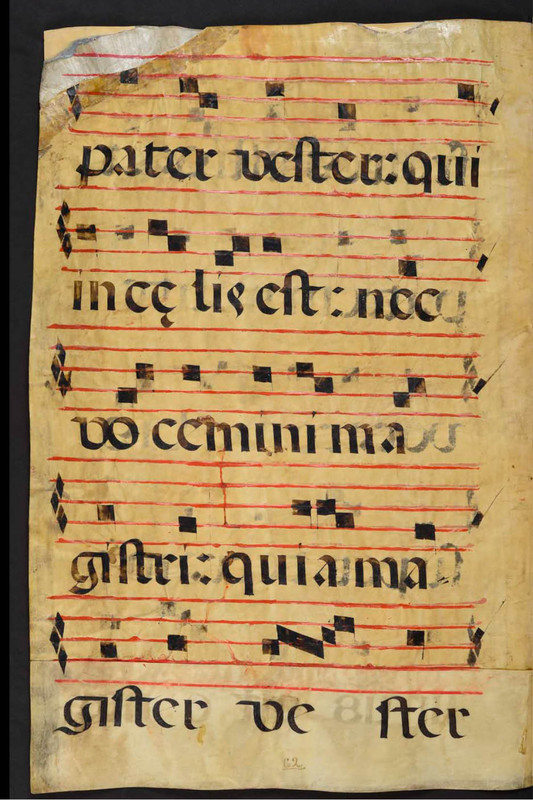 pater vester: qui
in cę lis est: nec
vo cemini ma
gistri: quia ma
gister ve ster
62